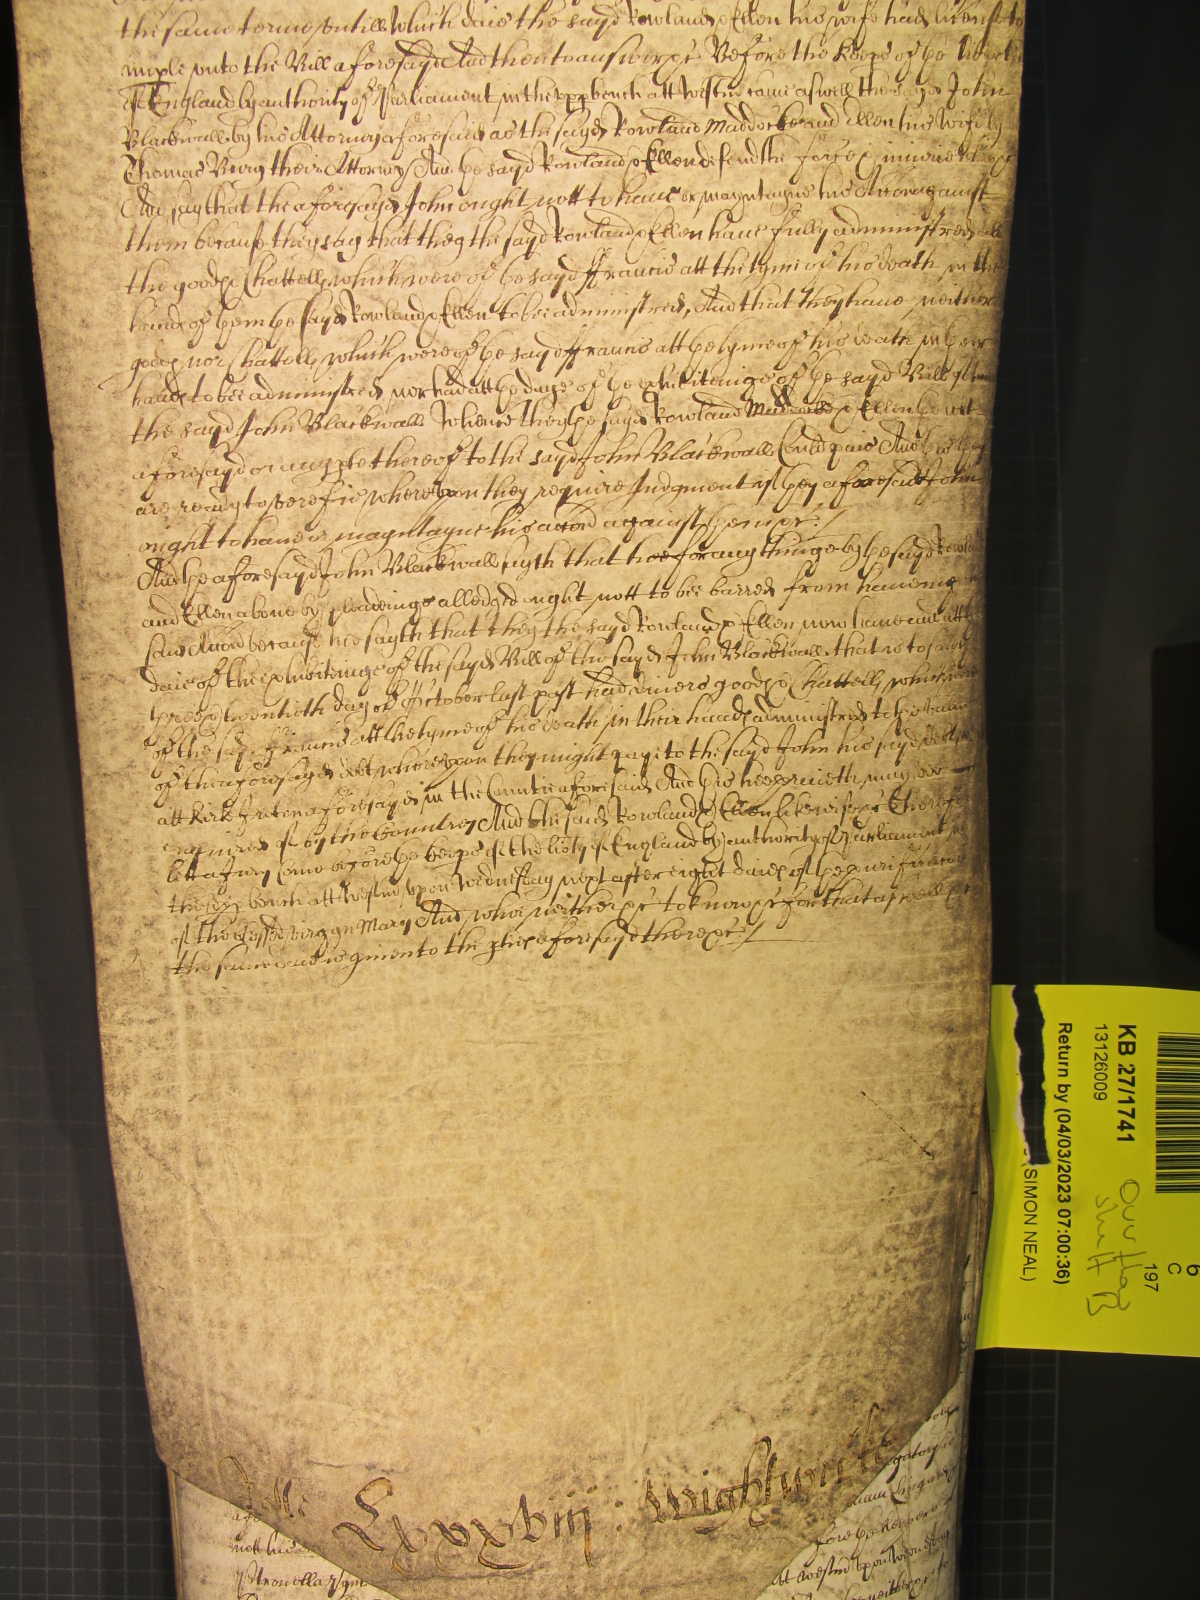 the same terme untill which daie the sayd Rowland & Ellen his wife had license to
imple unto the Bill aforesayd And then to answere &c Before the Keeps of the libertie
of England by authority of Parliament in the upp bench att Westm came aswell the sayd John
Blackwall by his Attorney aforesaid as the sayd Rowland Maddockes and Ellen his wife by
Thomas Burg their Attorney And the sayd Rowland & Ellen defend the force & iniurie when &c
And say that the aforesayd John ought nott to have or mayntayne his Accon against
them because they say that they the sayd Rowland & Ellen have fully administred all
the goods & Chattells which were of the sayd Francis att the tyme of his death in the
hands of them the sayd Rowland & Ellen to bee administred, And that they have neither
goods nor Chattells which were of the sayd Francis att the tyme of his death in their
hands to bee administred nor had att the daye of the exhibitinge of the sayd Bill of
the sayd John Blackwall Whence they the sayd Rowland Maddockes & Ellen the debt
aforesayd or any pte thereof to the sayd John Blackwall Could paie And this they
are ready to verefie whereupon they require Judgment if they aforesaid John
ought to have or mayntayne his accon against them &c /
And the aforesayd John Blackwall sayth that hee for any thinge by the sayd Rowland
and Ellen above by pleadinge alledged ought nott to bee barred from haveing
said Accon because hee sayth that they the sayd Rowland & Ellen now have and att the
daie of the exhibitinge of the sayd Bill of the sayd John Blackwall that is to say
twentieth day of October last past had divers goods & Chattells which were
of the sayd Francis att the tyme of his death in their hands administred to the value
of the aforesayd debt whereupon they might pay to the sayd John his sayd debt
att Kirk Ireton aforesayd in the Countie aforesaid And this hee prayeth may bee
enquired of by the Countrey And the said Rowland & Ellen likewise &c Therefore
lett a Jury Come before the keeps of the libty of England by authority of Parliament in
the upp bench att Westm upon Wednesday next after eight daies of the purificacon
of the blessed virgyn Mary And who neither &c to know &c for that aswell &c
the same daie is given to the pties aforesayd there &c /
Lxxxviij : Wightwick
KB 27/1741
13126009
Return by (04/03/2023 07:00:36)
(SIMON NEAL)
6
C
197